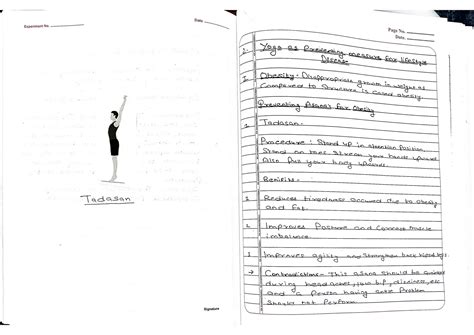 Experiment No.
Date
Tadasan
Signature
Page No.
Date
2. Yoga as Preventing measure For lifestyle
Disease
1 Obesity- Disappropriate growth in weight as
Compared to Structure is called obesity.
Preventing Asanas for Obesity
1 Tadasan:
Procedure: Stand up in attention Position.
Stand on toes Stretch your hands upward
Also Pull your body upwards.
Benifits-
1 Reduces tiredness occured due to obesity
and Fat.
2 Improves Posture and Correct muscle
imbalance.
3 Improves agility and Strengthen back
→ Contradictions- This asana should be
during headaches, low b.P, dizziness, etc
and a Person having Problem
Should not Perform.